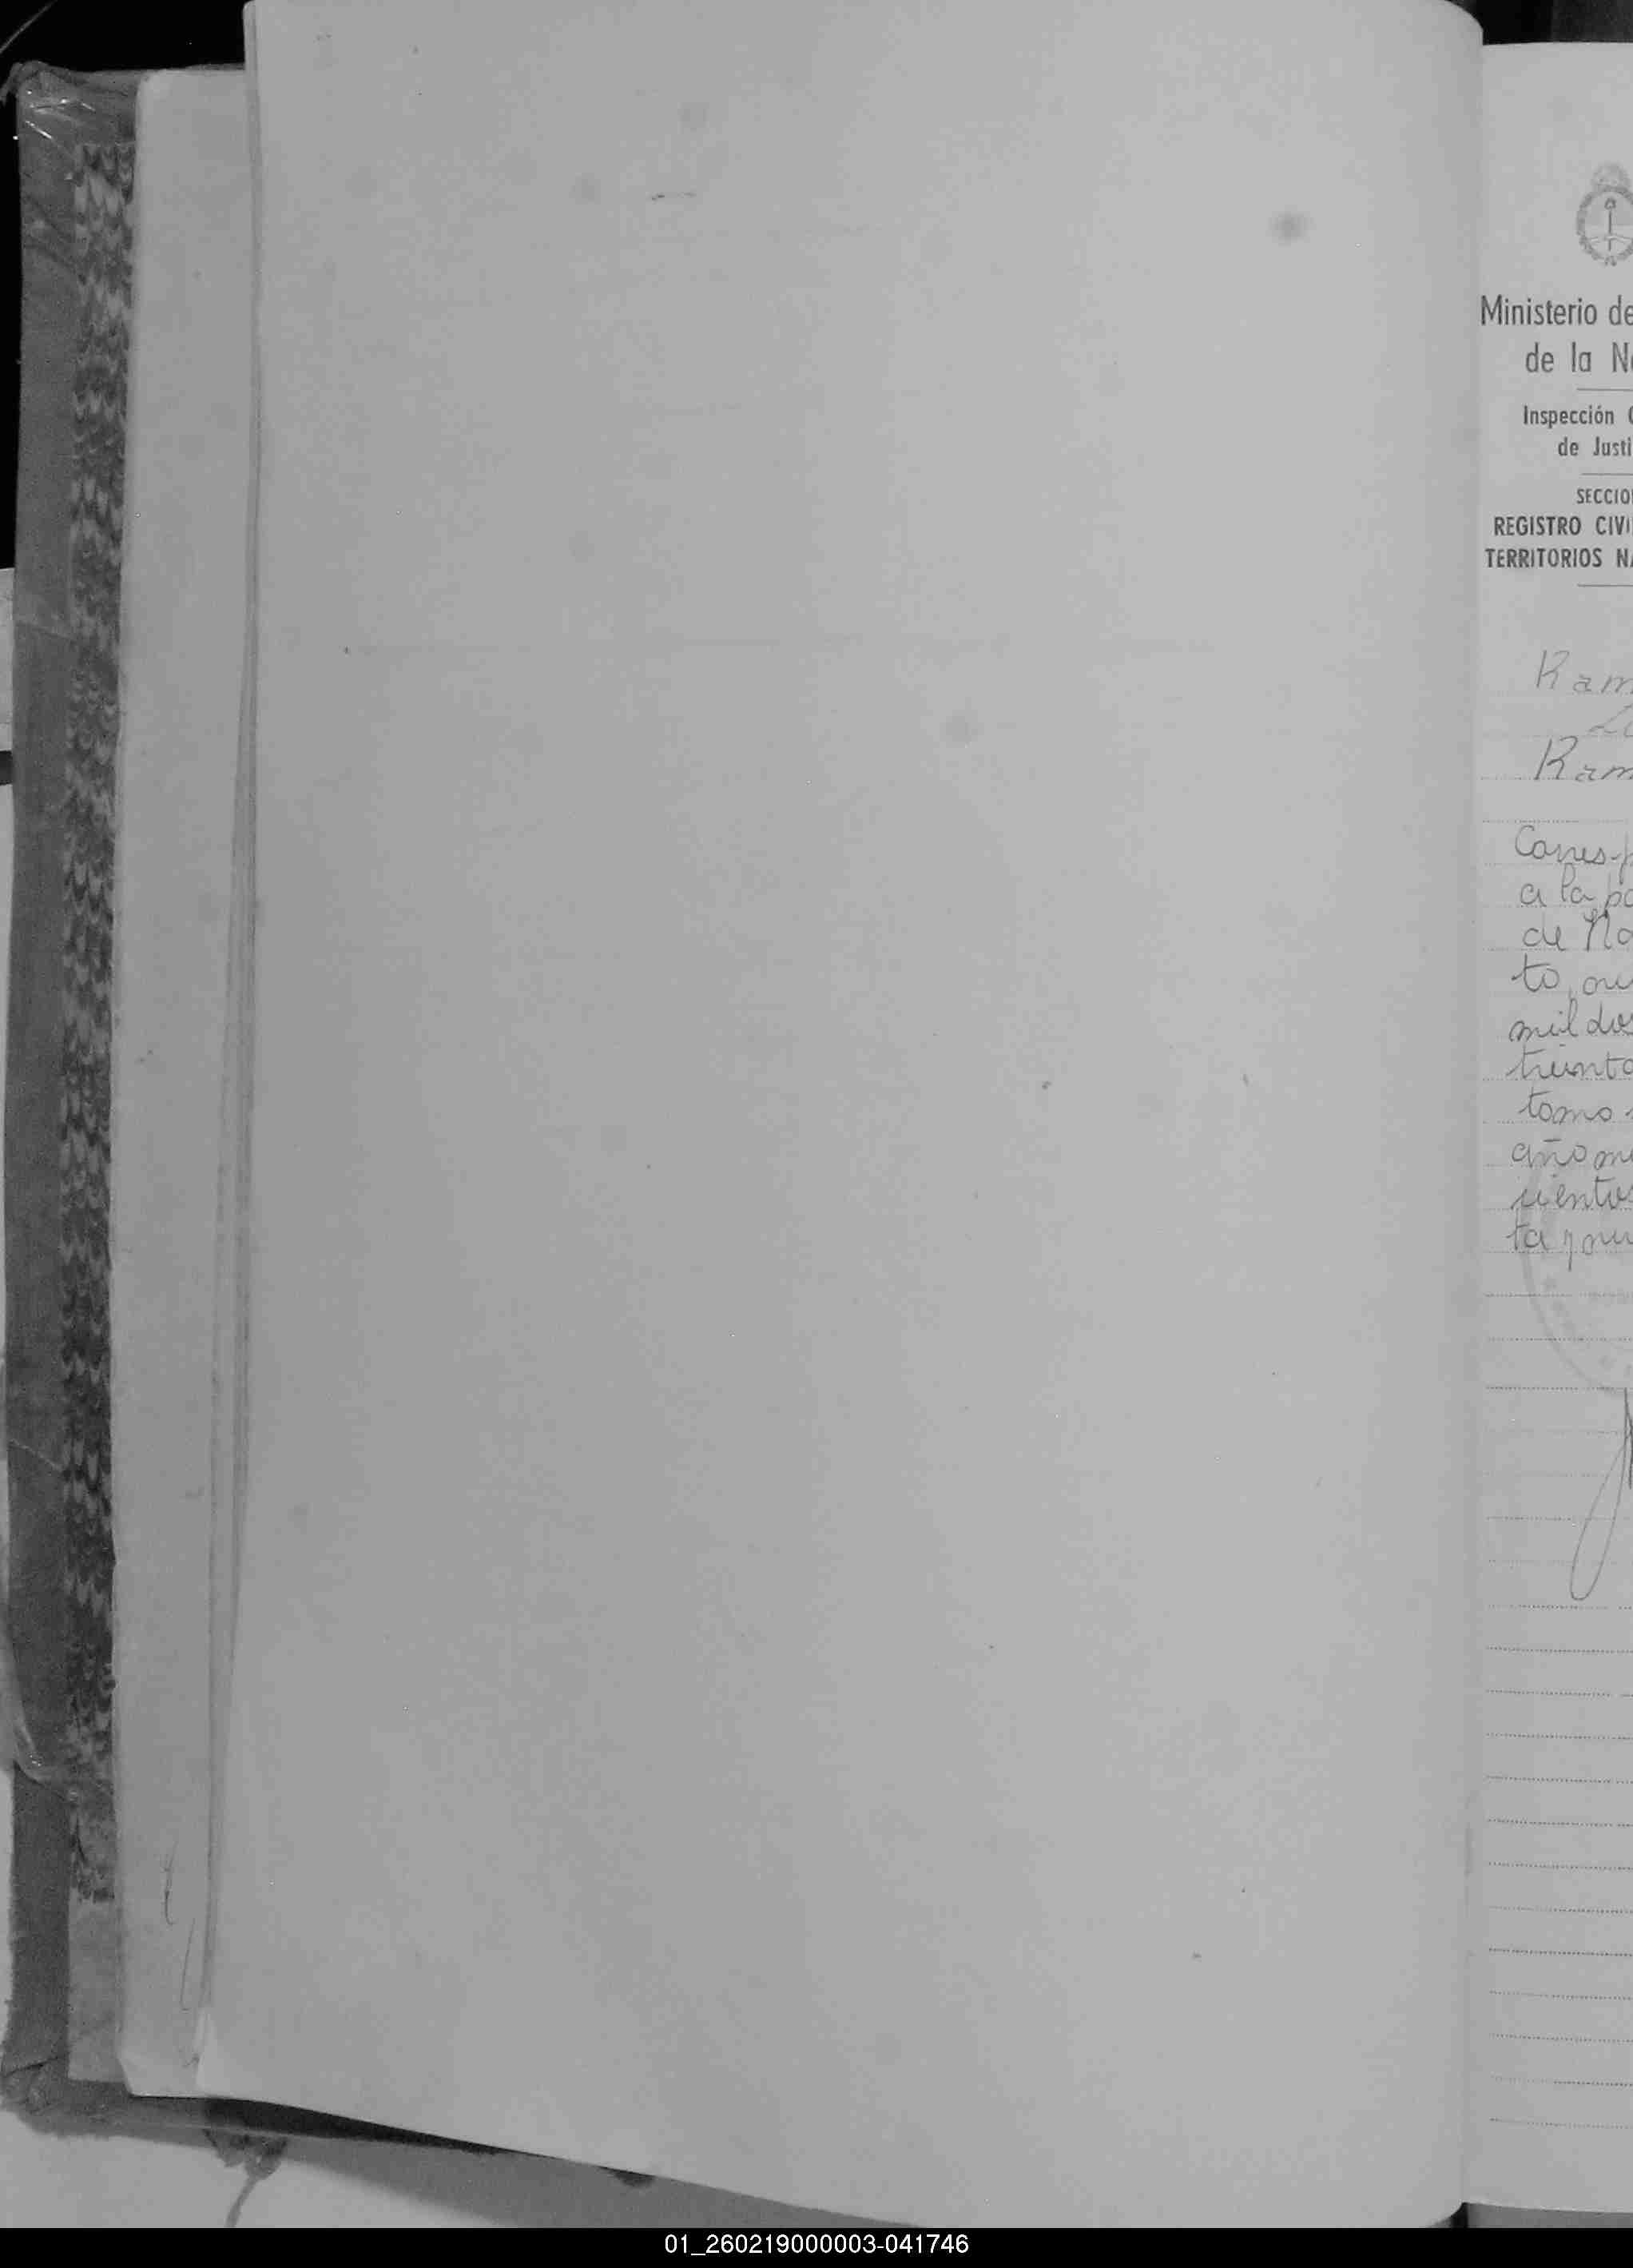 Ministerio de
de la N
Inspección
de Justi
SECCIO
REGISTRO CIVI
TERRITORIOS NA
Ram
Ram
Corresp
a la pa
de Na
to nu
mil dos
treinta
tomo
año mi
cientos
ta y nu
01_260219000003-041746